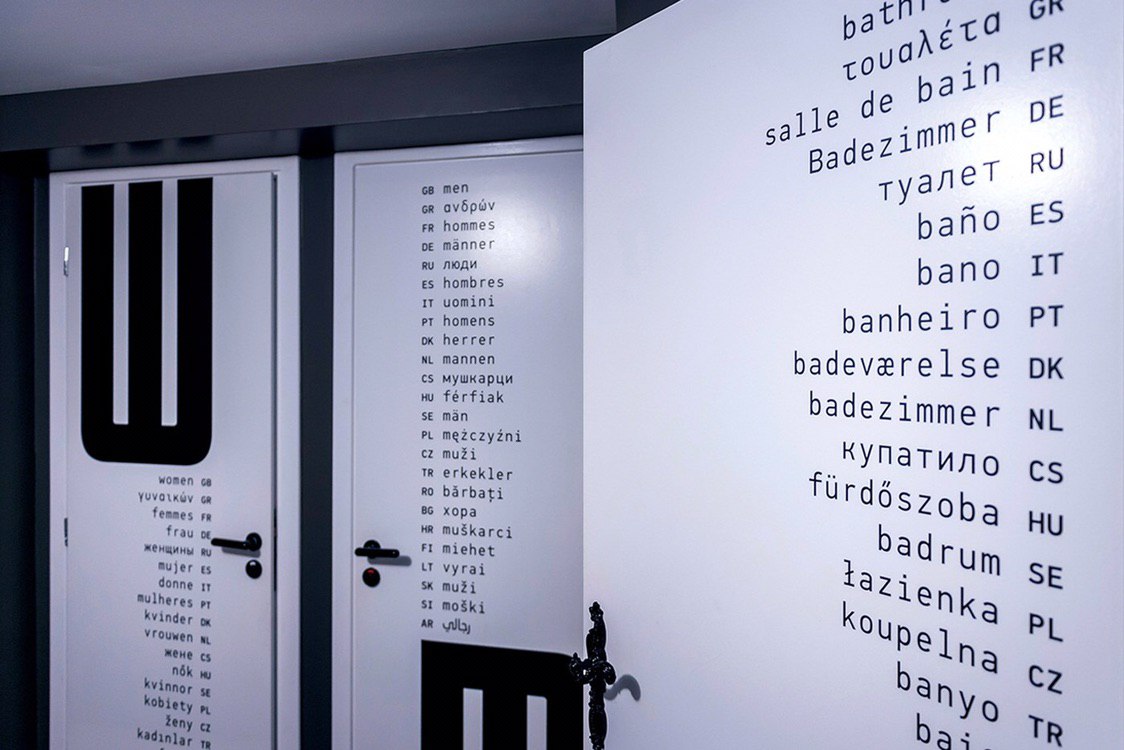 W
women GB
γυναικών GR
femmes FR
frau DE
женщины RU
mujer ES
donne IT
mulheres PT
kvinder DK
vrouwen NL
жене CS
nők HU
kvinnor SE
kobiety PL
ženy CZ
kadınlar TR
GB men
GR ανδρών
FR hommes
DE männer
RU люди
ES hombres
IT uomini
PT homens
DK herrer
NL mannen
CS мушкарци
HU férfiak
SE män
PL mężczyźni
CZ muži
TR erkekler
RO bărbaţi
BG хора
HR muškarci
FI miehet
LT vyrai
SK muži
SI moški
AR رجالي
τουαλέτα GR
salle de bain FR
Badezimmer DE
туалет RU
baño ES
bano IT
banheiro PT
badeværelse DK
badezimmer NL
купатило CS
fürdőszoba HU
badrum SE
łazienka PL
koupelna CZ
banyo TR